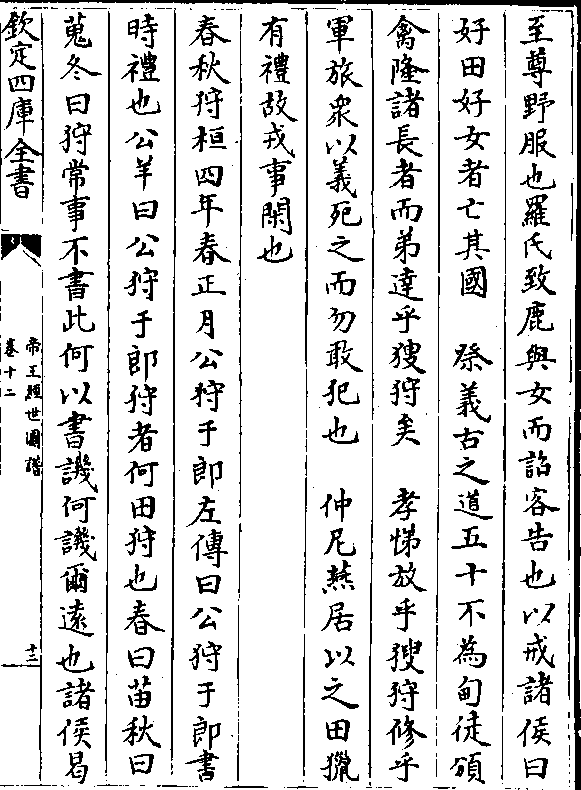 至尊野服也羅氏致鹿與女而詔客告也以戒諸侯曰
好田好女者亡其國　祭義古之道五十不為甸徒頒
禽隆諸長者而弟達乎獀狩矣　孝悌放乎獀狩修乎
軍旅衆以義死之而勿敢犯也　仲尼燕居以之田獵
有禮故戎事閑也
春秋狩桓四年春正月公狩于郎左傳曰公狩于郎書
時禮也公羊曰公狩于郎狩者何田狩也春曰苗秋曰
蒐冬曰狩常事不書此何以書譏何譏爾逺也諸侯曷
欽定四庫全書
帝王經世圖譜
卷十二
十三